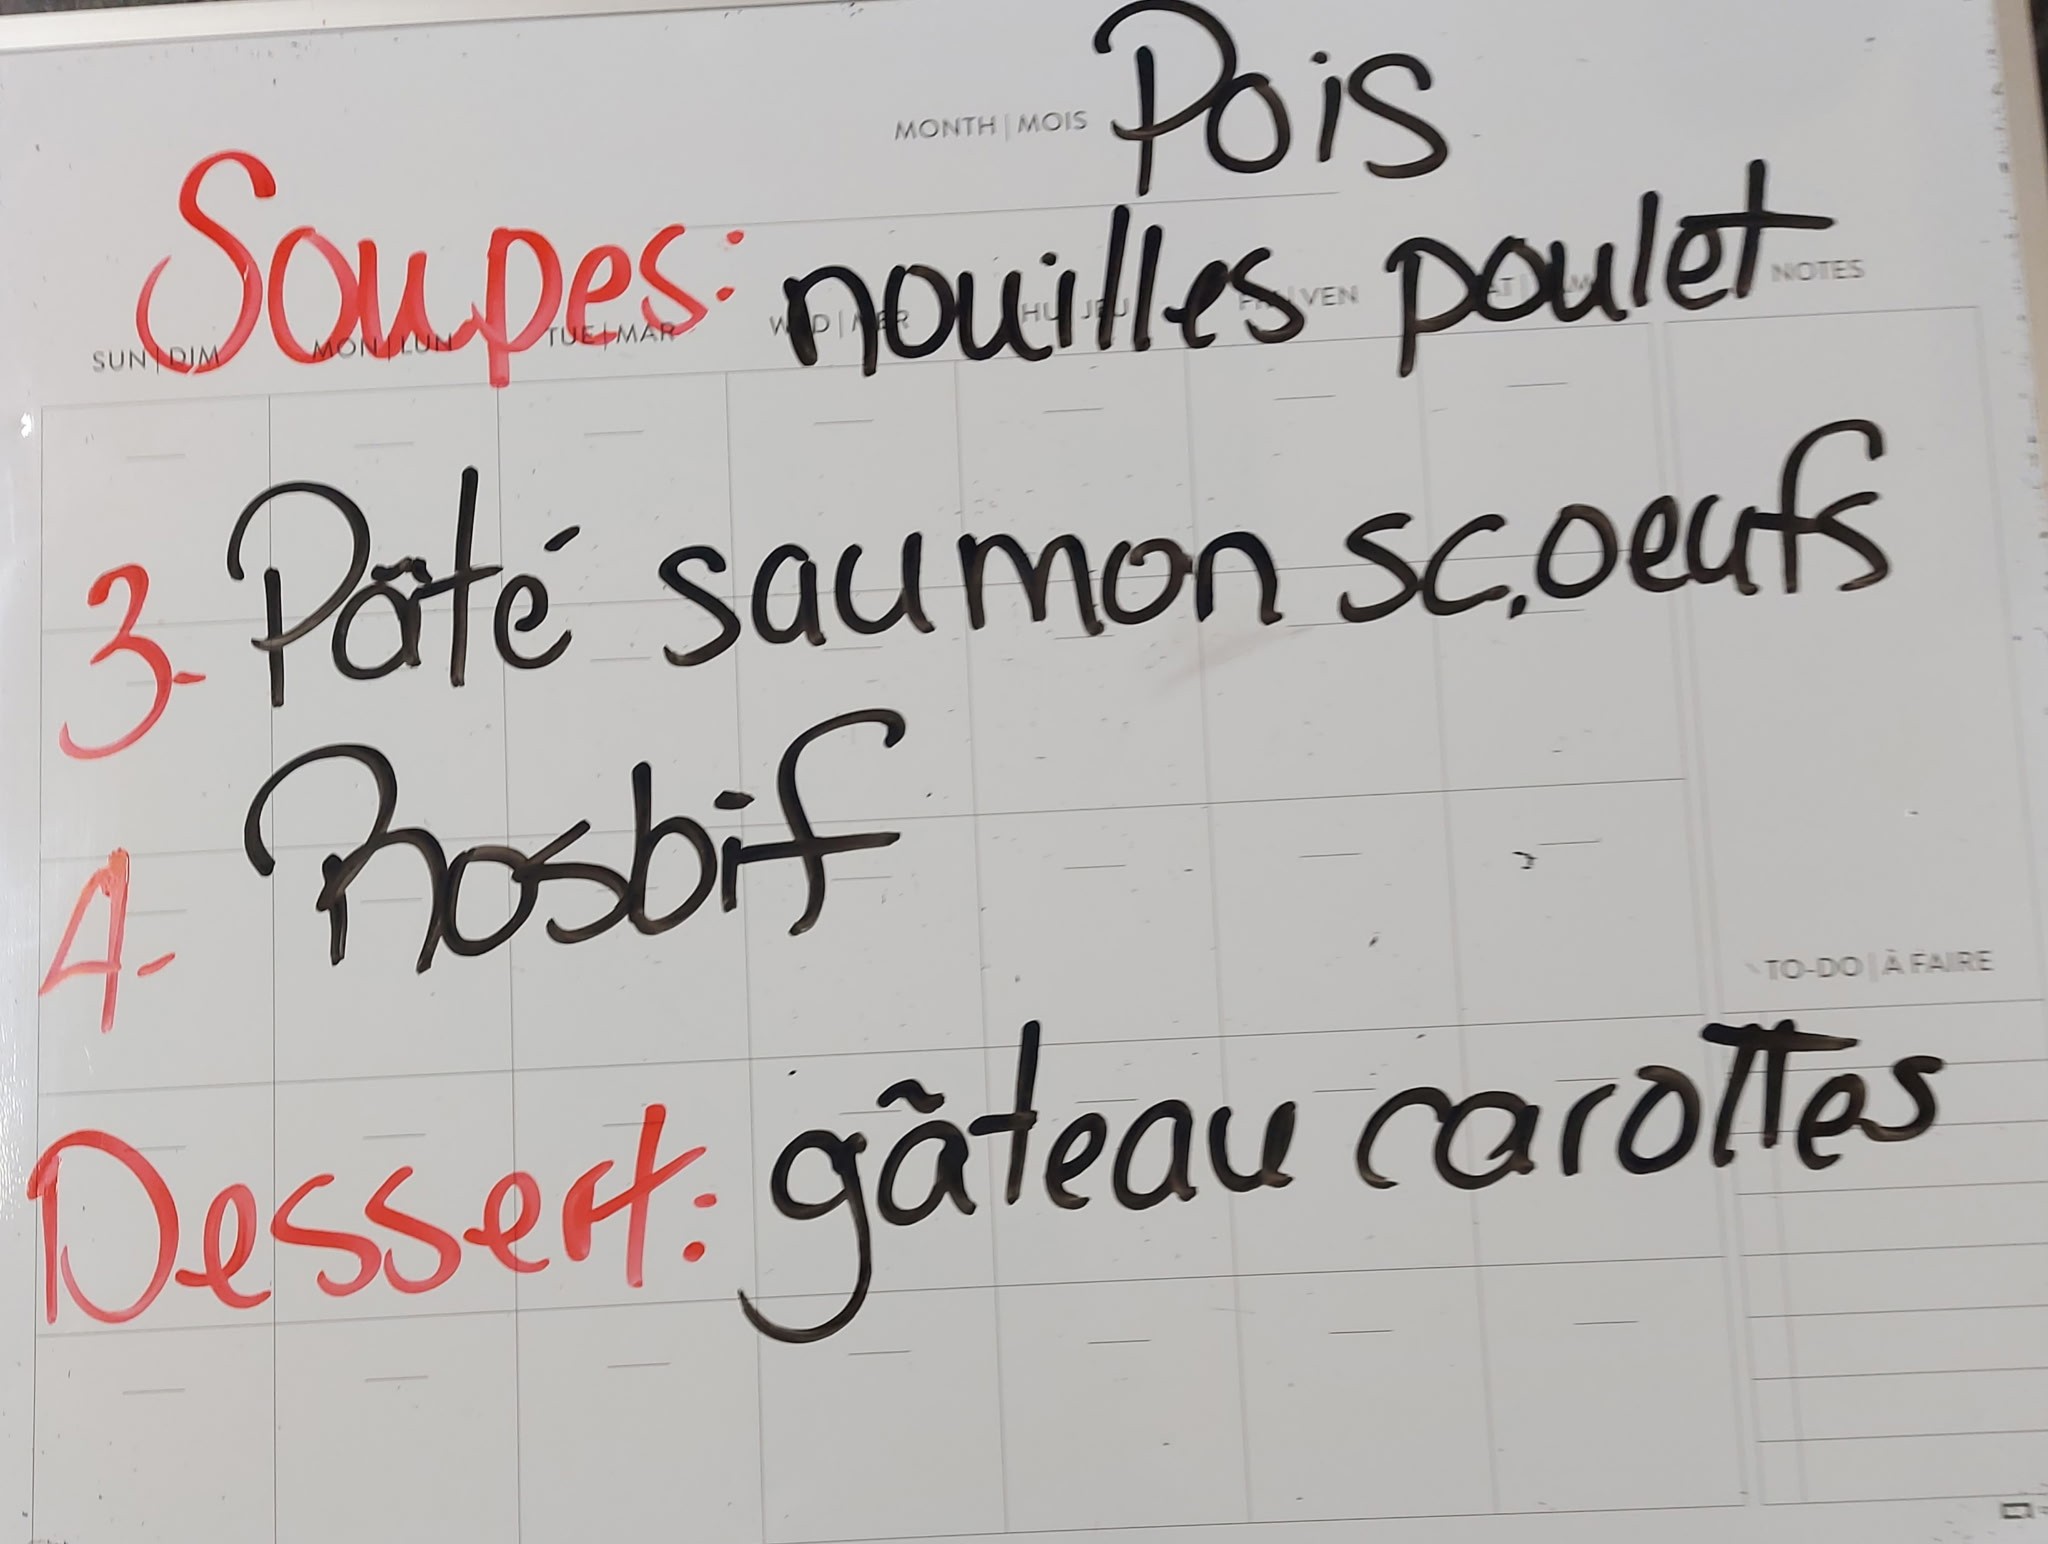 Pois
MONTH | MOIS
Soupes: nouilles poulet
SUN | DIM MON | LUN TUE | MAR WED | MER THU | JEU FRI | VEN SAT | SAM NOTES
3- Pâté saumon sc.oeufs
4- Rosbif
TO-DO | À FAIRE
Dessert: gâteau carottes